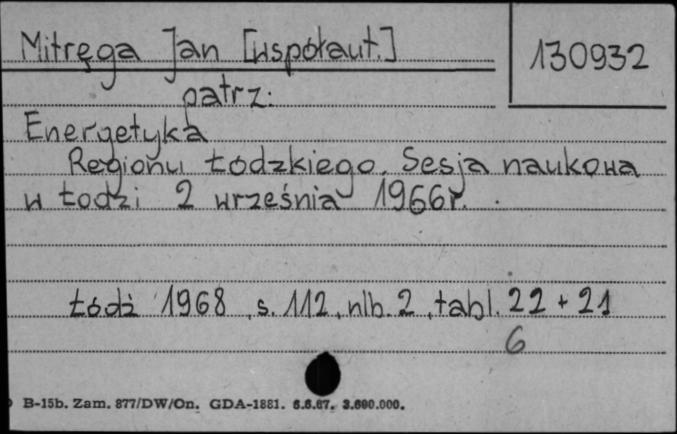 Mitręga Jan [współaut.]
130932
patrz:
Energetyka
Regionu Łódzkiego. Sesja naukowa
w Łodzi 2 września 1966r.
Łódź 1968, s. 112, nlb. 2, tabl. 22 + 21
6
B-15b. Zam. 877/DW/On. GDA-1881. 6.6.67. 3.600.000.